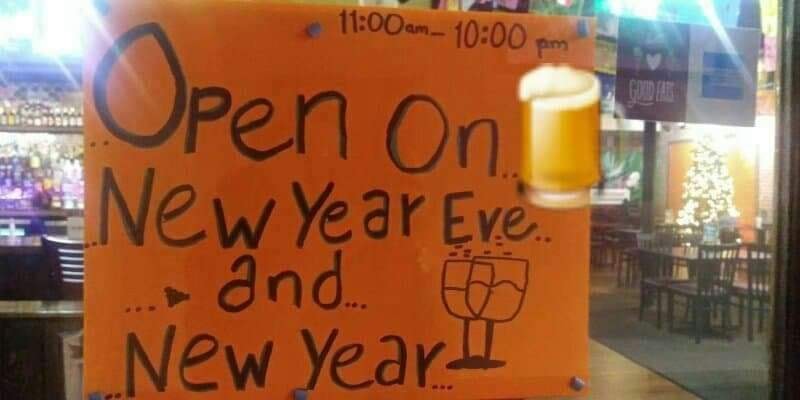 11:00am- 10:00 pm
Open On..
..New Year Eve..
...and...
..New Year...
GOOD EATS